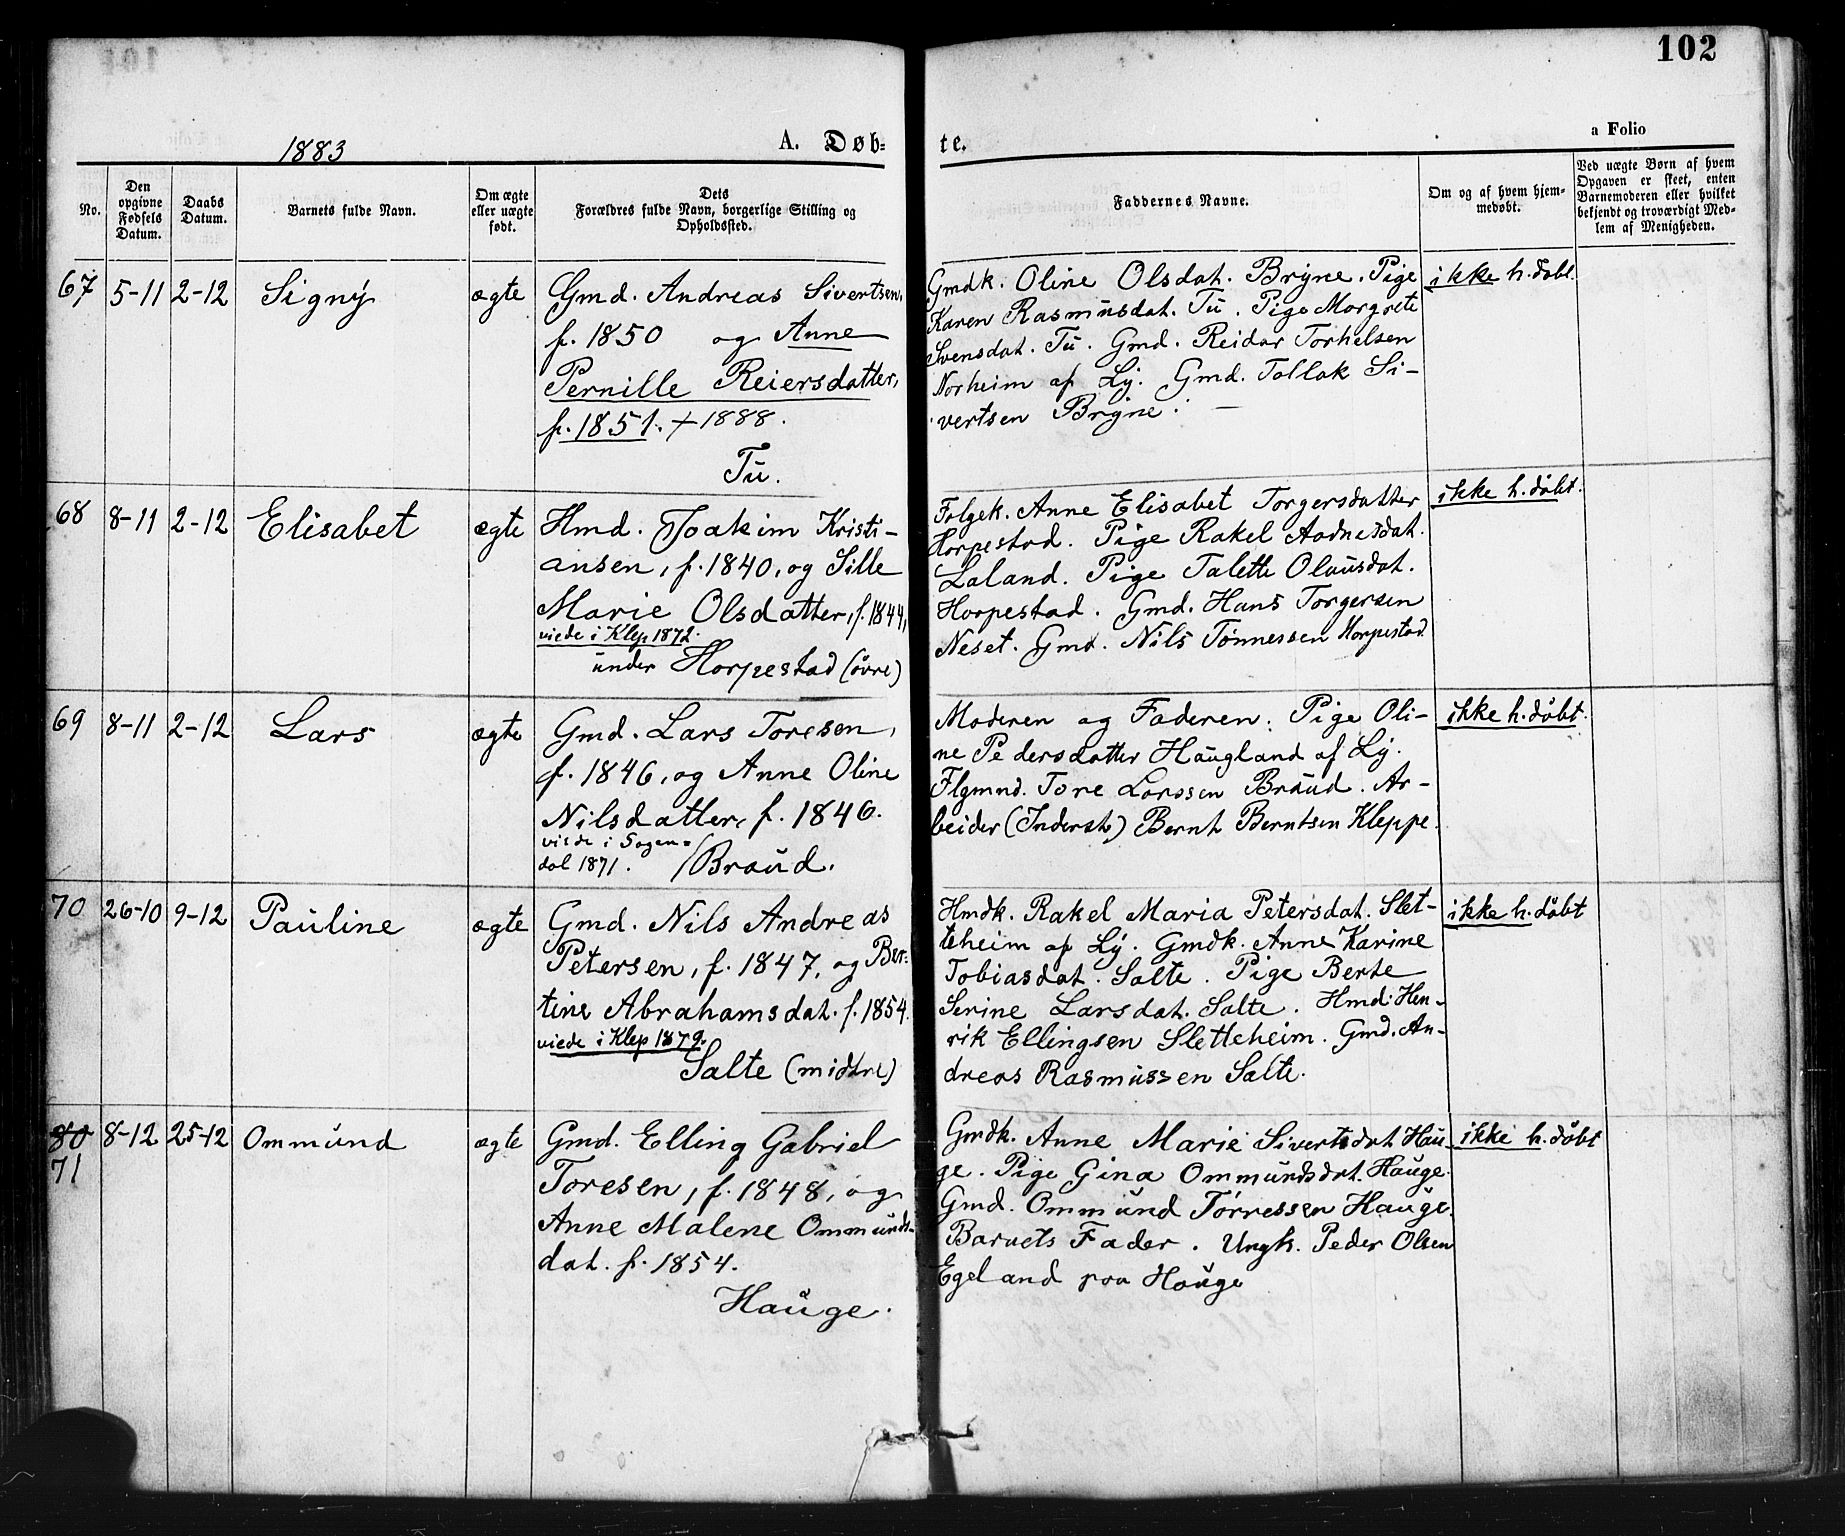 102
1883
A. Døb-
te.
a Folio
No.
Den
opgivne
Fødsels
Datum.
Daabs
Datum.
Barnets fulde Navn.
Om ægte
eller uægte
født.
Dets
Forældres fulde Navn, borgerlige Stilling og
Opholdssted.
Faddernes Navne.
Om og af hvem hjem-
medøbt.
Ved uægte Børn af hvem
Opgaven er skeet, enten
Barnemoderen eller hvilket
bekjendt og troværdigt Med-
lem af Menigheden.
67 5-11 2-12 Signy ægte
Gmd. Andreas Sivertsen,
f. 1850 og Anne
Pernille Reiersdatter,
f. 1851. + 1888.
Tu.
Gmdk. Oline Olsdat. Bryne. Pige
Karen Rasmusdat. Tu. Pige Morgrete
Svensdat. Tu. Gmd. Reidar Torkelsen
Norheim af Ly. Gmd. Tollak Si-
vertsen Bryne. —
ikke h. døbt.
68 8-11 2-12 Elisabet ægte
Hmd. Joakim Kristi-
ansen, f. 1840, og Sille
Marie Olsdatter, f. 1844,
viede i Klep 1872.
under Horpestad (övre)
Folgek. Anne Elisabet Torgersdatter
Horpestad. Pige Rakel Aadnesdat.
Laland. Pige Talette Olausdat.
Horpestad. Gmd. Hans Torgersen
Neset. Gmd. Nils Tønnessen Horpestad
ikke h. døbt.
69 8-11 2-12 Lars ægte
Gmd. Lars Toresen,
f. 1846, og Anne Oline
Nilsdatter, f. 1846.
viede i Sogen-
dal 1871. Braud.
Moderen og Faderen. Pige Oli-
ne Pedersdatter Haugland af Ly.
Flgmnd. Tore Larssen Braud. Ar-
beider (Inderst) Bernt Berntsen Kleppe.
ikke h. døbt.
70 26-10 9-12 Pauline ægte
Gmd. Nils Andreas
Petersen, f. 1847, og Ber-
tine Abrahamsdat. f. 1854.
viede i Klep 1879.
Salte (midtre)
Hmdk. Rakel Maria Petersdat. Slet-
teheim af Ly. Gmdk. Anne Karine
Tobiasdat. Salte. Pige Berte
Serine Larsdat. Salte. Hmd. Hen-
rik Ellingsen Sletteheim. Gmd. An-
dreas Rasmussen Salte.
ikke h. døbt
80 8-12 25-12 Ommund ægte
71
Gmd. Elling Gabriel
Toresen, f. 1848, og
Anne Malene Ommunds-
dat. f. 1854.
Hauge.
Gmdk. Anne Marie Sivertsdat Hau-
ge. Pige Gina Ommundsdat. Hauge.
Gmd. Ommund Tørressen Hauge.
Barnets Fader. Ungk. Peder Olsen
Egeland paa Hauge
ikke h. døbt